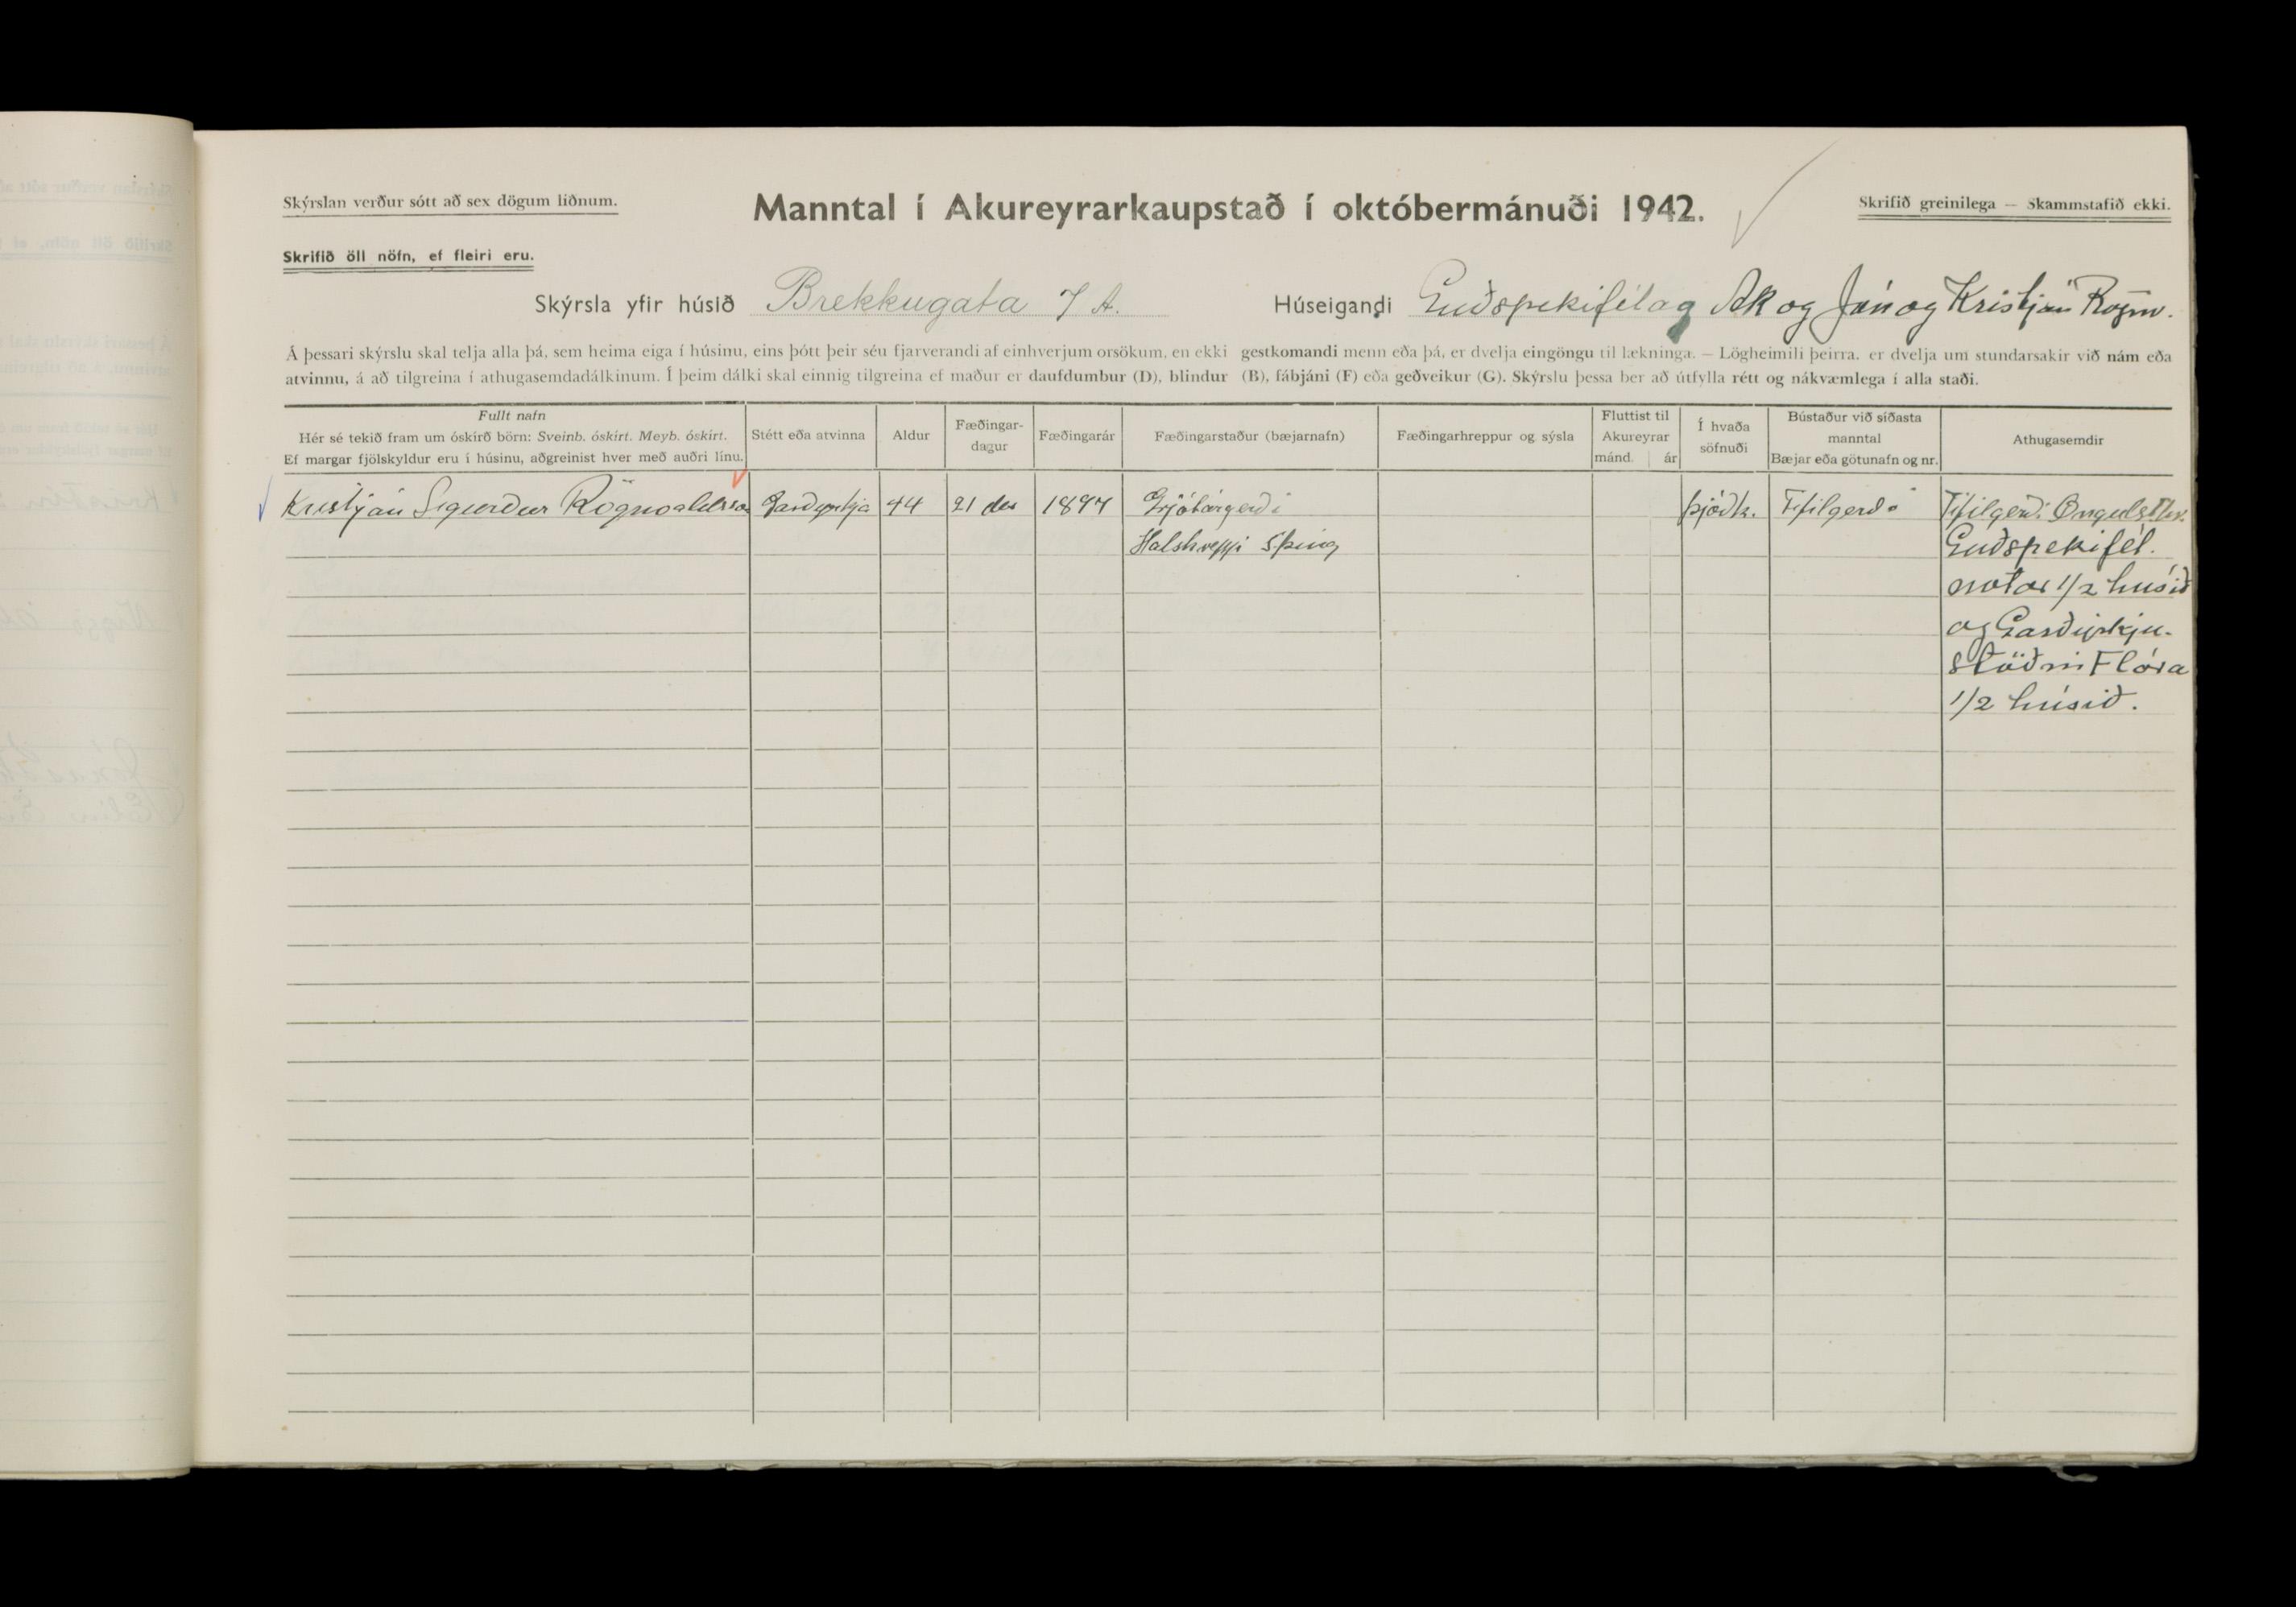 Skýrslan verður sótt að sex dögum liðnum.
Manntal í Akureyrarkaupstað í októbermánuði 1942.
Skrifið greinilega — Skammstafið ekki.
Skrifið öll nöfn, ef fleiri eru.
Skýrsla yfir húsið Brekkugata 7 A. Húseigandi Guðspekifélag Ak og Jón og Kristján Rögnv.
Á þessari skýrslu skal telja alla þá, sem heima eiga í húsinu, eins þótt þeir séu fjarverandi af einhverjum orsökum, en ekki gestkomandi menn eða þá, er dvelja eingöngu til lækninga. — Lögheimili þeirra, er dvelja um stundarsakir við nám eða
atvinnu, á að tilgreina í athugasemdadálkinum. Í þeim dálki skal einnig tilgreina ef maður er daufdumbur (D), blindur (B), fábjáni (F) eða geðveikur (G). Skýrslu þessa ber að útfylla rétt og nákvæmlega í alla staði.
Fullt nafn
Hér sé tekið fram um óskírð börn: Sveinb. óskírt. Meyb. óskírt.
Ef margar fjölskyldur eru í húsinu, aðgreinist hver með auðri línu.
Stétt eða atvinna
Aldur
Fæðingar-
dagur
Fæðingarár
Fæðingarstaður (bæjarnafn)
Fæðingarhreppur og sýsla
Fluttist til
Akureyrar
mánd. ár
Í hvaða
söfnuði
Bústaður við síðasta
manntal
Bæjar eða götunafn og nr.
Athugasemdir
Kristján Sigurður Rögnvaldsson Garðyrkja 44 21 des 1897 Grjótárgerði þjóðk. Fífilgerði Fífilgerði Öngulsst.hr.
Halshreppi S þing Guðspekifél.
notar 1/2 húsið
og Garðyrkju-
stöðin Flóra
1/2 húsið.